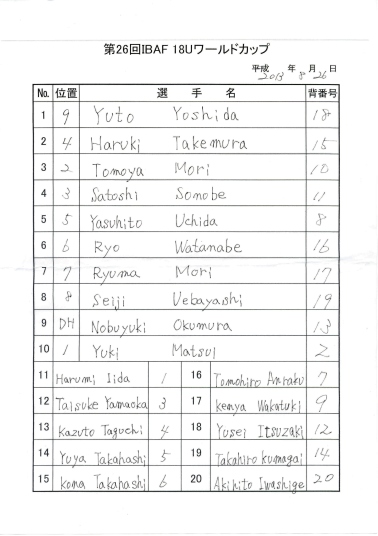 第26回IBAF 18Uワールドカップ
平成 2013 年 8 月 26 日
No. 位置 選 手 名 背番号
1 9 Yuto Yoshida 18
2 4 Haruki Takemura 15
3 2 Tomoya Mori 10
4 3 Satoshi Sonobe 11
5 5 Yasuhito Uchida 8
6 6 Ryo Watanabe 16
7 7 Ryuma Mori 17
8 8 Seiji Uebayashi 19
9 DH Nobuyuki Okumura 13
10 1 Yuki Matsui 2
11 Harumi Iida 1 16 Tomohiro Anraku 7
12 Taisuke Yamaoka 3 17 Kenya Wakatuki 9
13 Kazuto Taguchi 4 18 Yusei Itsuzaki 12
14 Yuya Takahashi 5 19 Takahiro Kumagai 14
15 Kona Takahashi 6 20 Akihito Iwashige 20